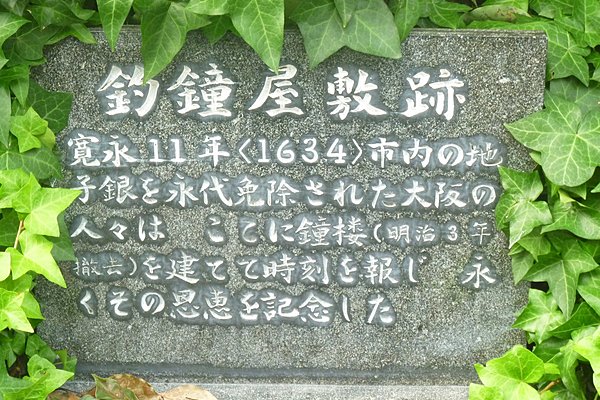 釣鐘屋敷跡
寛永11年<1634>市内の地
子銀を永代免除された大阪の
人々は ここに鐘楼(明治3年
撤去)を建てて時刻を報じ 永
くその恩恵を記念した